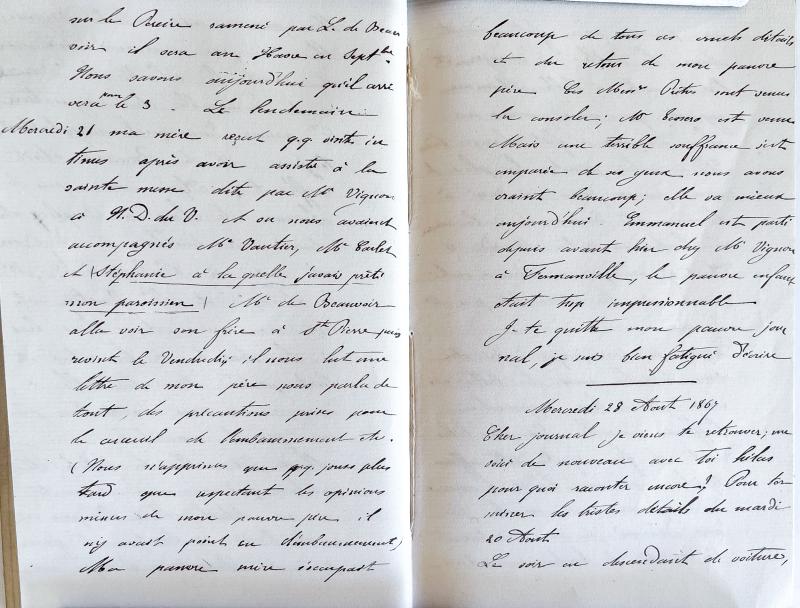 sur le Pereire ramené par L. de Beau
voir il sera au Havre en Septbre
Nous savons aujourd'hui qu'il arri
vera pour le 3. Le lendemain
Mercredi 21 ma mère reçut q.q. visite in
times après avoir assisté à la
sainte messe dite par Mr Vignon
à N. D. du V. et ou nous avaient
accompagnés Me Vautier, Me Carlet
et (Stéphanie à la quelle j'avais prêté
mon paroissien) Mr de Beauvoir
alla voir son frère à St Pierre puis
revint le Vendredi; il nous lut une
lettre de mon père nous parla de
tout, des précautions prises pour
le cercueil de l'embaumement etc.
(Nous n'apprimes que q.q. jours plus
tard que respectant les opinions
de mon pauvre père il
n'y avait point eu d'embaumement)
Ma pauvre mère s'occupait
beaucoup de tous ces cruels détails
et du retour de mon pauvre
père Les Messrs sont venus
la consoler; Mr est venu
Mais une terrible souffrance s'est
emparée de ses yeux nous avons
craint beaucoup; elle va mieux
aujourd'hui. Emmanuel est parti
depuis avant hier chez Mr Vignon
à Fermanville, le pauvre enfant
était trop impressionnable
Je te quitte mon pauvre jour
nal, je suis bien fatigué d'écrire
Mercredi 28 Août 1867
Cher journal je viens te retrouver; me
voici de nouveau avec toi hélas
pourquoi raconter encore? Pour ter
miner les tristes détails du mardi
20 Août
Le soir en descendant de voiture,